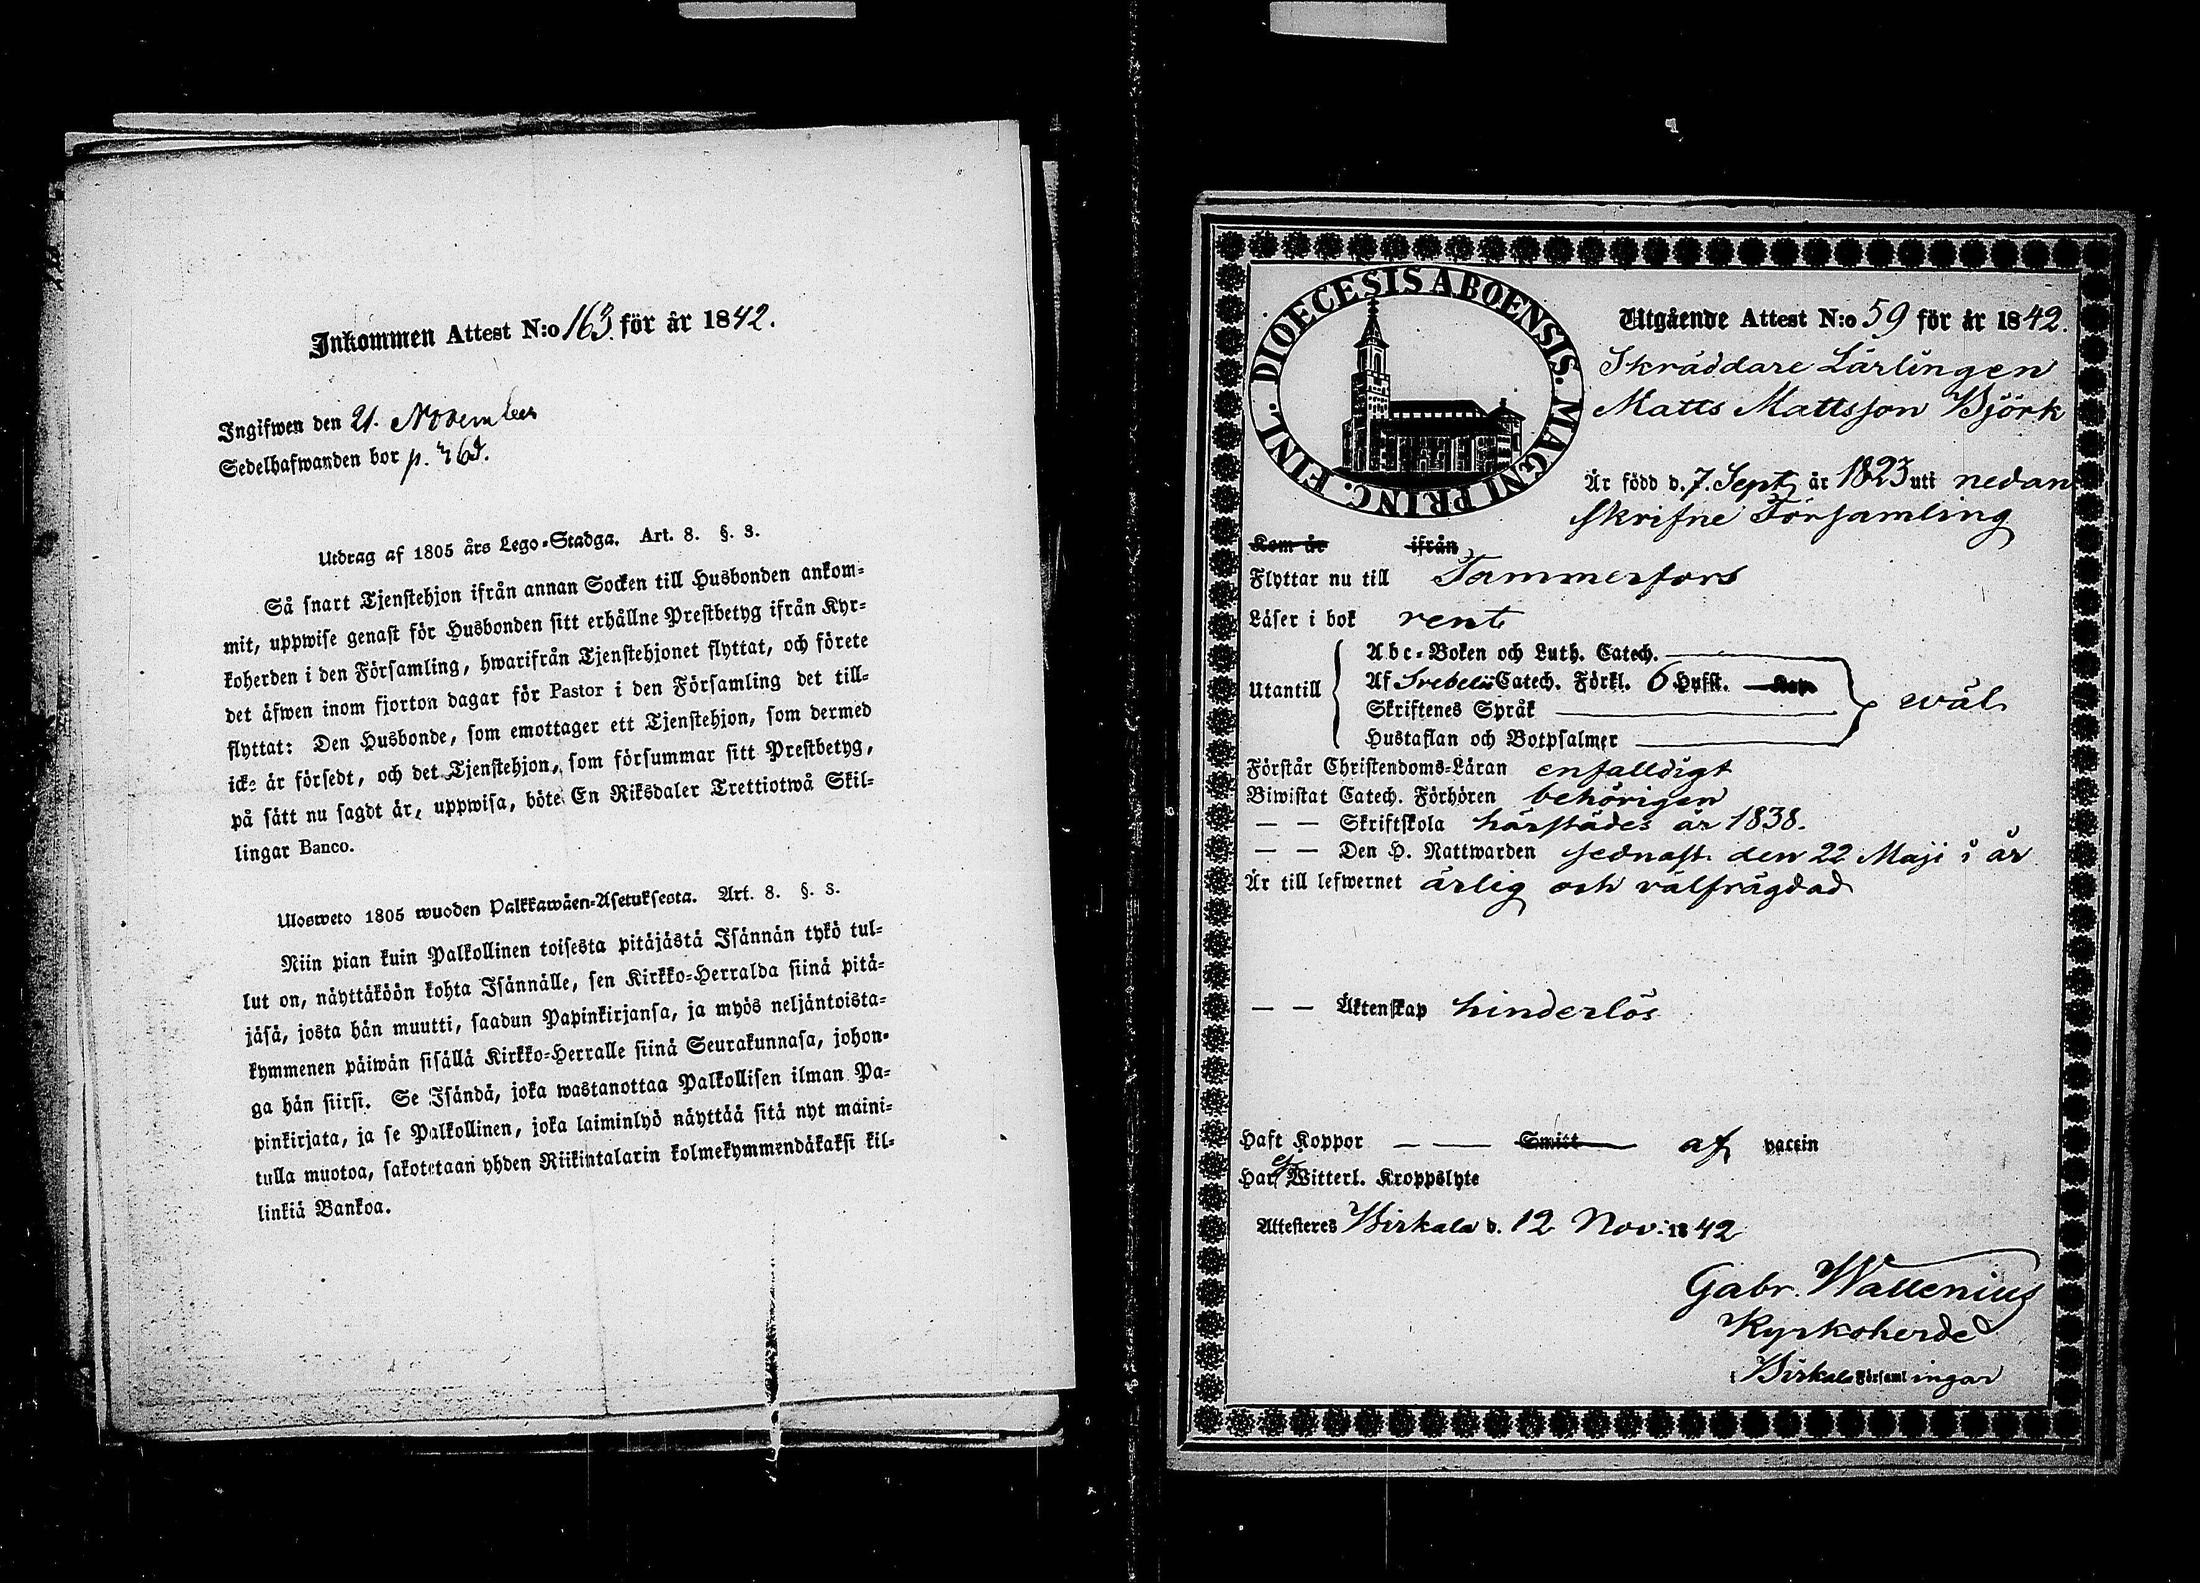 Inkommen Attest N:o 163. för år 1842.
Ingifwen den 21. November
Sedelhafwanden bor p.
Utdrag af 1805 års Lego-Stadga. Art. 8. §. 3.
Så snart Tjenstehjon ifrån annan Socken till Husbonden ankom-
mit, uppwise genast för Husbonden sitt erhållne Prestbetyg ifrån Kyr-
koherden i den Församling, hwarifrån Tjenstehjonet flyttat, och förete
det äfwen inom fjorton dagar för Pastor i den Församling det till-
flyttat: Den Husbonde, som emottager ett Tjenstehjon, som dermed
icke är försedt, och det Tjenstehjon, som försummar sitt Prestbetyg,
på sätt nu sagdt är, uppwisa, böte En Riksdaler Trettiotwå Skil-
lingar Banco.
Ulosweto 1805 wuoden Palkkawäen-Asetuksesta. Art. 8. §. 3.
Niin pian kuin Palkollinen toisesta pitäjästä Isännän tykö tul-
lut on, näyttäköön kohta Isännälle, sen Kirkko-Herralda siinä pitä-
jäsä, josta hän muutti, saadun Papinkirjansa, ja myös neljäntoista-
kymmenen päiwän sisällä Kirkko-Herralle siinä Seurakunnasa, johon-
ga hän siirsi. Se Isändä, joka wastanottaa Palkollisen ilman Pa-
pinkirjata, ja se Palkollinen, joka laiminlyö näyttää sitä nyt maini-
tulla muotoa, sakotetaan yhden Riikintalarin kolmekymmendäkaksi kil-
linkiä Bankoa.
DIOECESIS ABOENSIS. MAGNI PRINC. FINL.
Utgående Attest N:o 59 för år 1842.
Skräddare Lärlingen
Matts Mattsson Björk
Är född d. 7. Sept. år 1823 uti nedan
skrifne Församling
Kom år ifrån
Flyttar nu till Tammerfors
Läser i bok rent
Utantill
Abc-Boken och Luth. Catech.
Af Svebelii Catech. Förkl. 6 Hufst.
Skriftenes Språk
Hustaflan och Botpsalmer
wäl
Förstår Christendoms-Läran enfalldigt
Biwistat Catech. Förhören behörigen
— — Skriftskola härstädes år 1838.
— — Den H. Nattwarden sednast den 22 Maji i år
Är till lefwernet ärlig och välfrägdad
— — Äktenskap hinderlös
Haft Koppor — — Smitt af vaccin
Har ej Witterl. Kroppslyte
Attesteres Birkala d. 12 Nov. 1842
Gabr. Wallenius
Kyrkoherde
i Birkala Församlingar